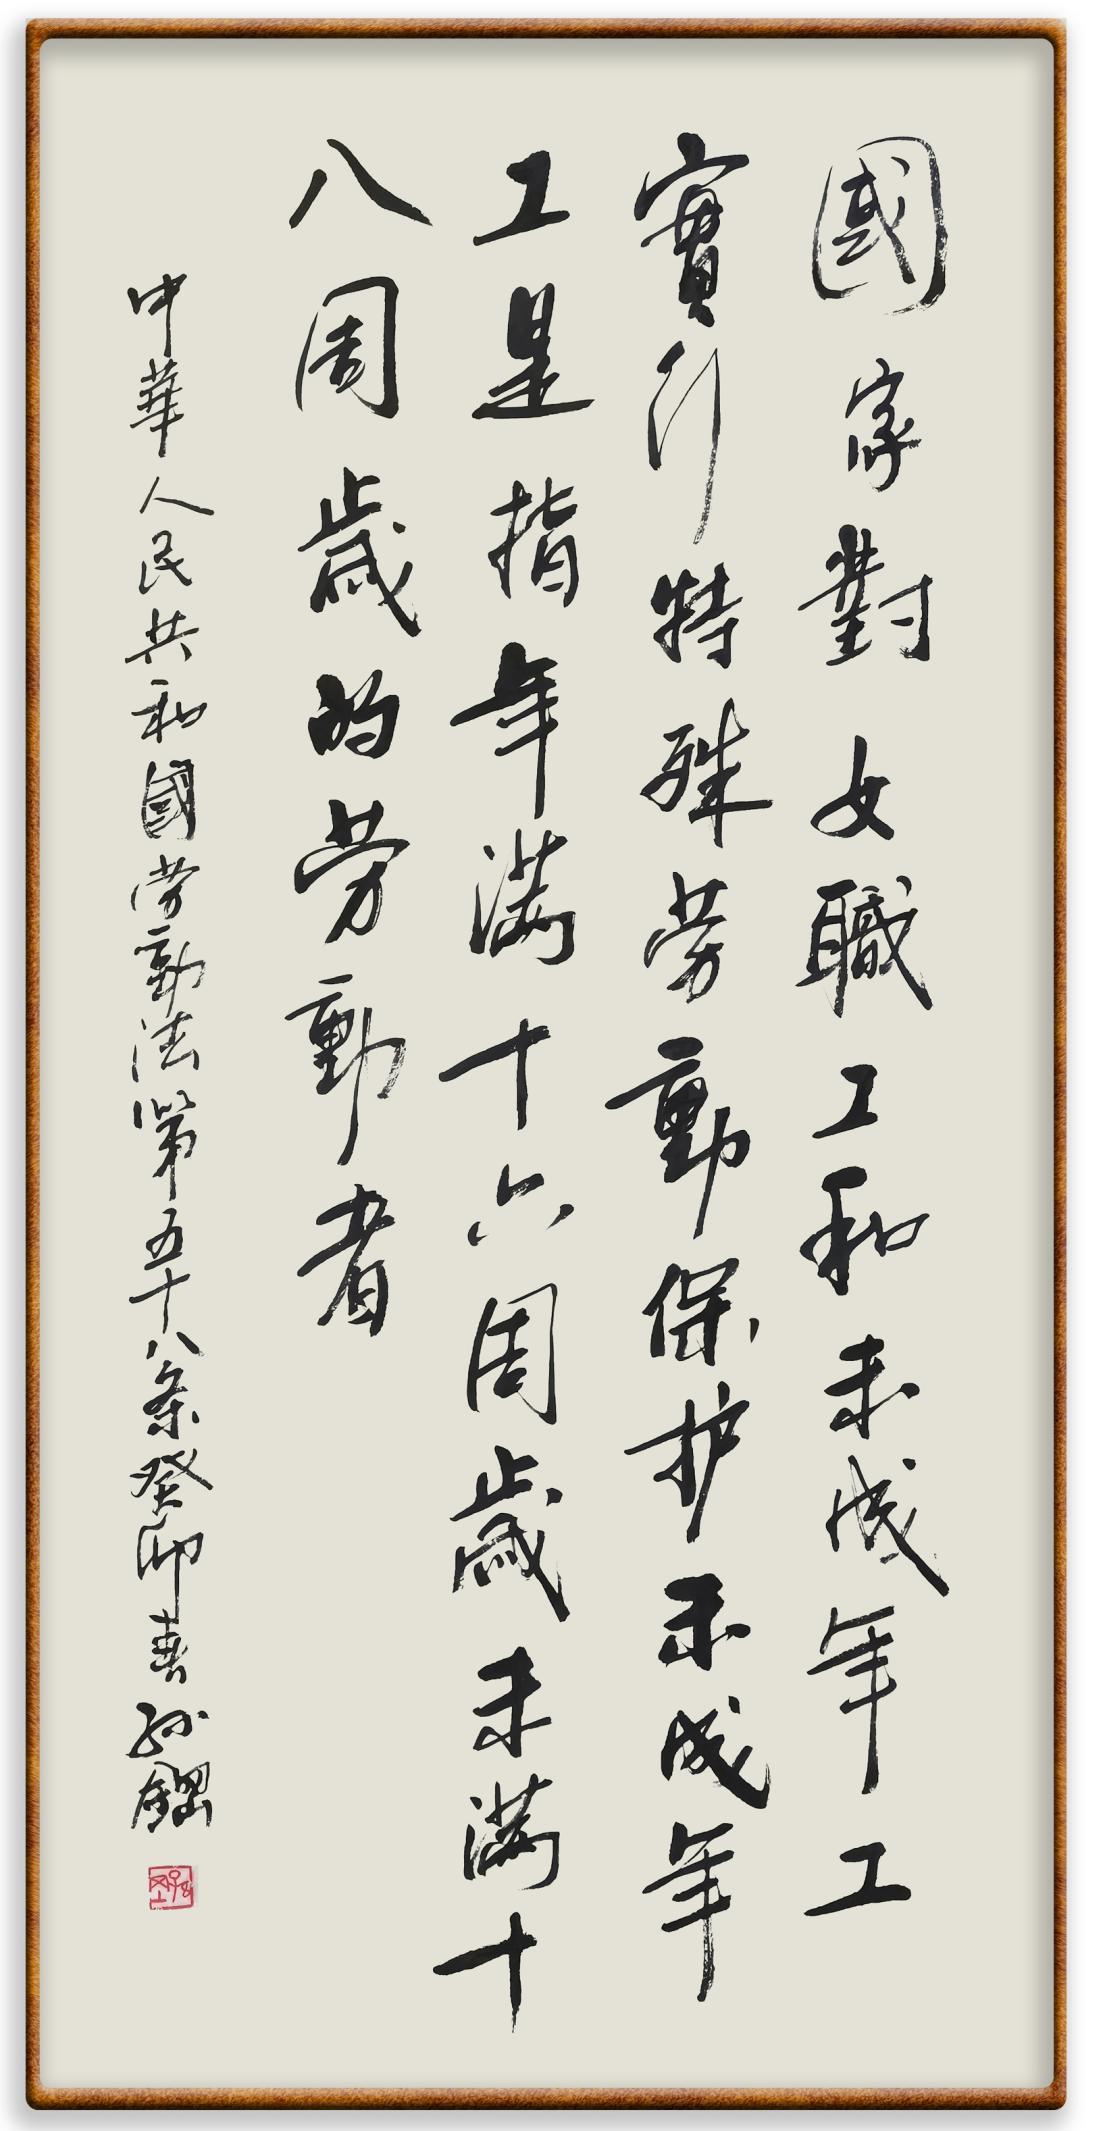 國家對女職工和未成年工
實行特殊劳動保护未成年
工是指年满十六周歲未满十
八周歲的劳動者
中華人民共和國劳動法第五十八条癸卯春孙鋼